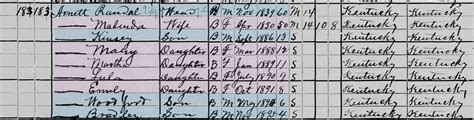 183 183 Arnett Randal Head B M Nov 1839 60 M 14 Kentucky Kentucky
— Malinda Wife B F Apr 1850 50 M 14 10 8 Kentucky Kentucky
— Kinsey Son B M Sept 1886 13 S Kentucky Kentucky
— Mahy Daughter B F Mar 1888 12 S Kentucky Kentucky
— Martha Daughter B F Jan 1889 11 S Kentucky Kentucky
— Lula Daughter B F July 1890 9 S Kentucky Kentucky
— Emily Daughter B F Oct 1891 8 S Kentucky Kentucky
— Woodford Son B M May 1894 6 S Kentucky Kentucky
— Bradley Son B M Nov 1895 4 S Kentucky Kentucky